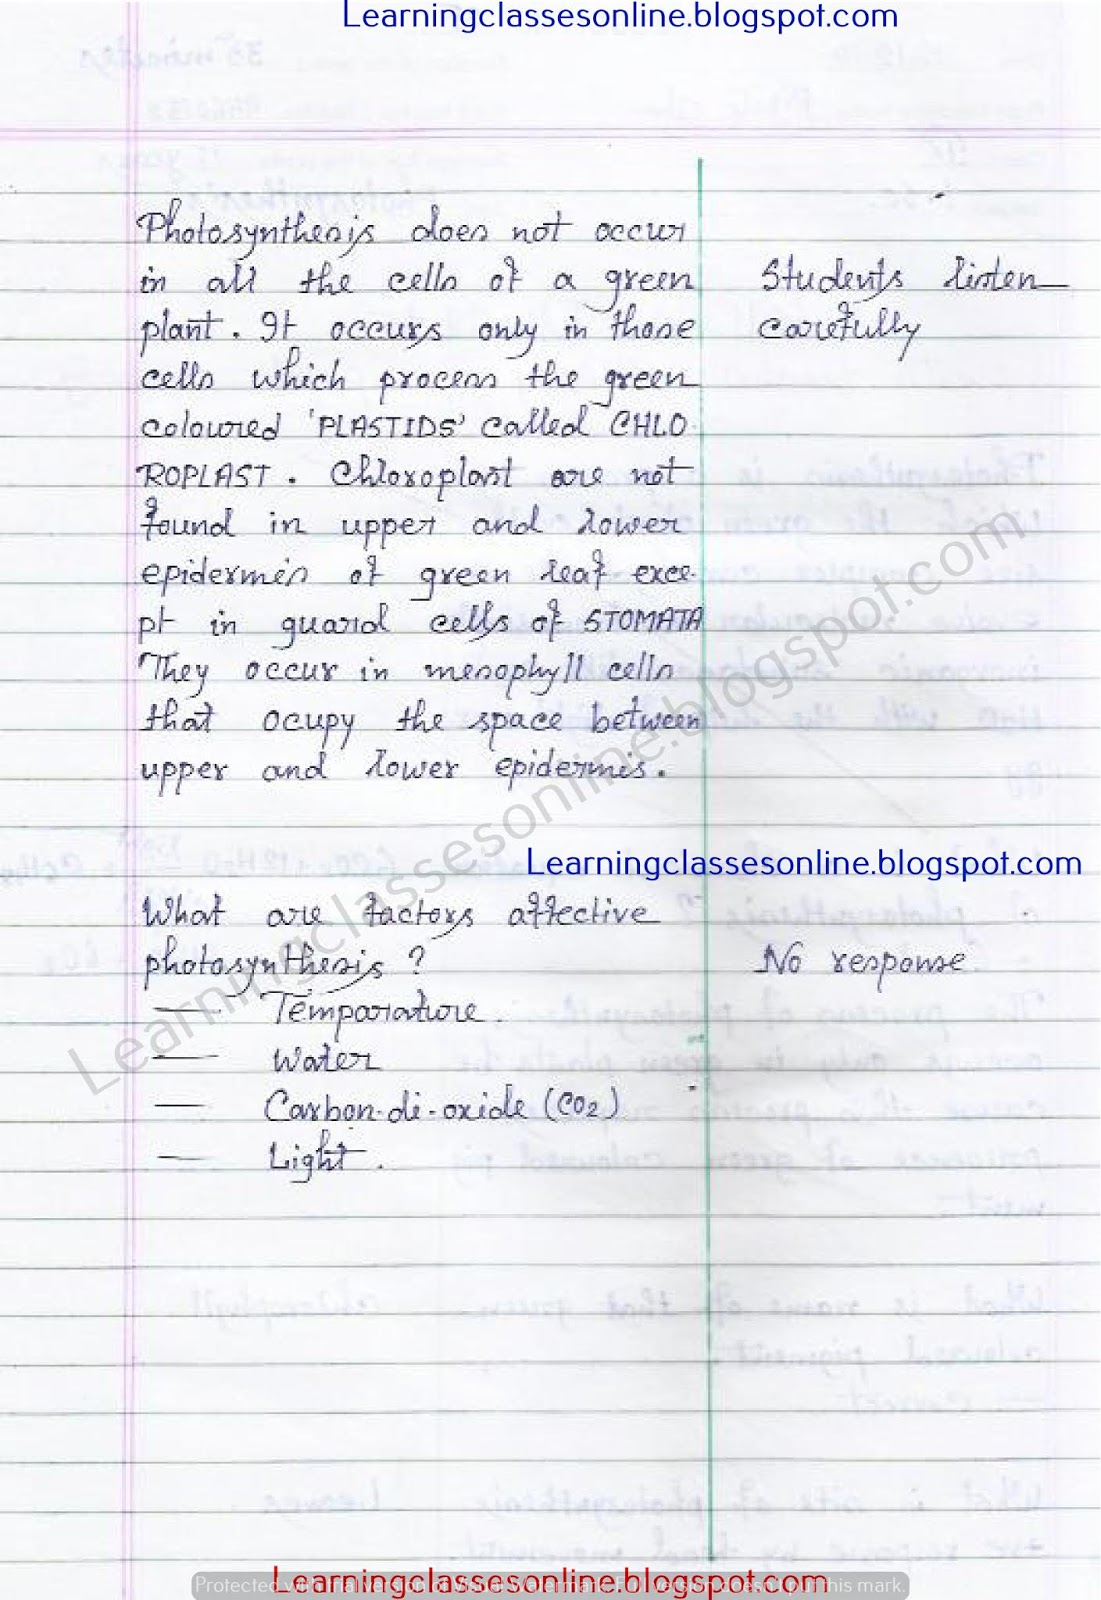 Learningclassesonline.blogspot.com
Photosynthesis does not occur
in all the cells of a green
plant. It occurs only in those
cells which process the green
coloured 'PLASTIDS' called CHLO
ROPLAST. Chloroplast are not
found in upper and lower
epidermis of green leaf exce-
pt in guard cells of STOMATA
They occur in mesophyll cells
that ocupy the space between
upper and lower epidermis.
Students listen
carefully
Learningclassesonline.blogspot.com
What are factors affective
photosynthesis ?
No response
— Temparature.
— Water
— Carbon-di-oxide (CO2)
— Light.
Learningclassesonline.blogspot.com
Learningclassesonline.blogspot.com
Protected with trial version of Visual Watermark. Full version doesn't put this mark.